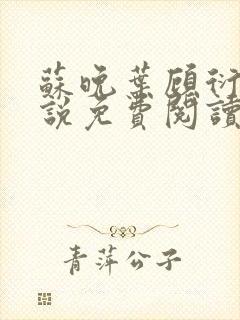 蘇晚葉顧衍
說免費閱讀
青萍公子